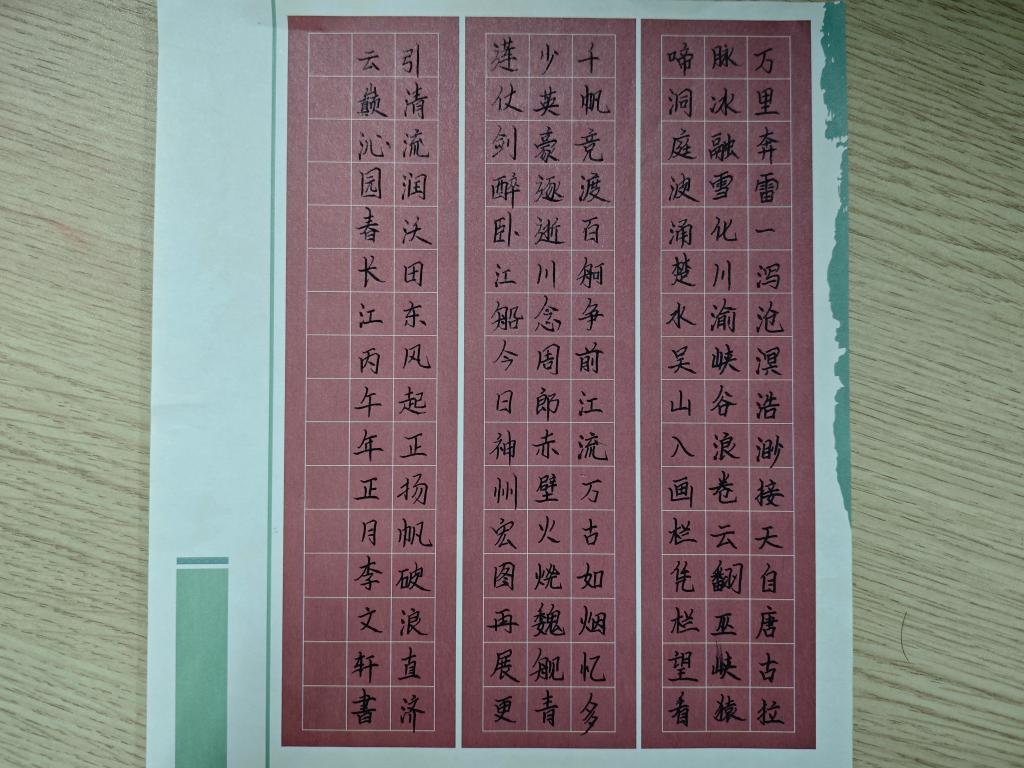 万里奔雷一泻沧溟浩渺接天自唐古拉
脉冰融雪化川渝峡谷浪卷云翻巫峡猿
啼洞庭波涌楚水吴山入画栏凭栏望看
千帆竞渡百舸争前江流万古如烟忆多
少英豪逐逝川念周郎赤壁火烧魏舰青
莲仗剑醉卧江船今日神州宏图再展更
引清流润沃田东风起正扬帆破浪直济
云巅沁园春长江丙午年正月李文轩書